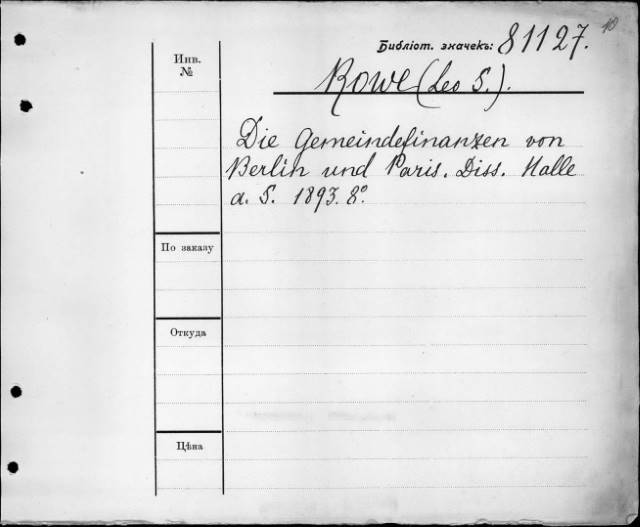 10
Библіот. значекъ: 81127.
Инв. №
Rowe (Leo S.).
Die Gemeindefinanzen von
Berlin und Paris. Diss. Halle
a. S. 1893. 8º.
По заказу
Откуда
Цѣна